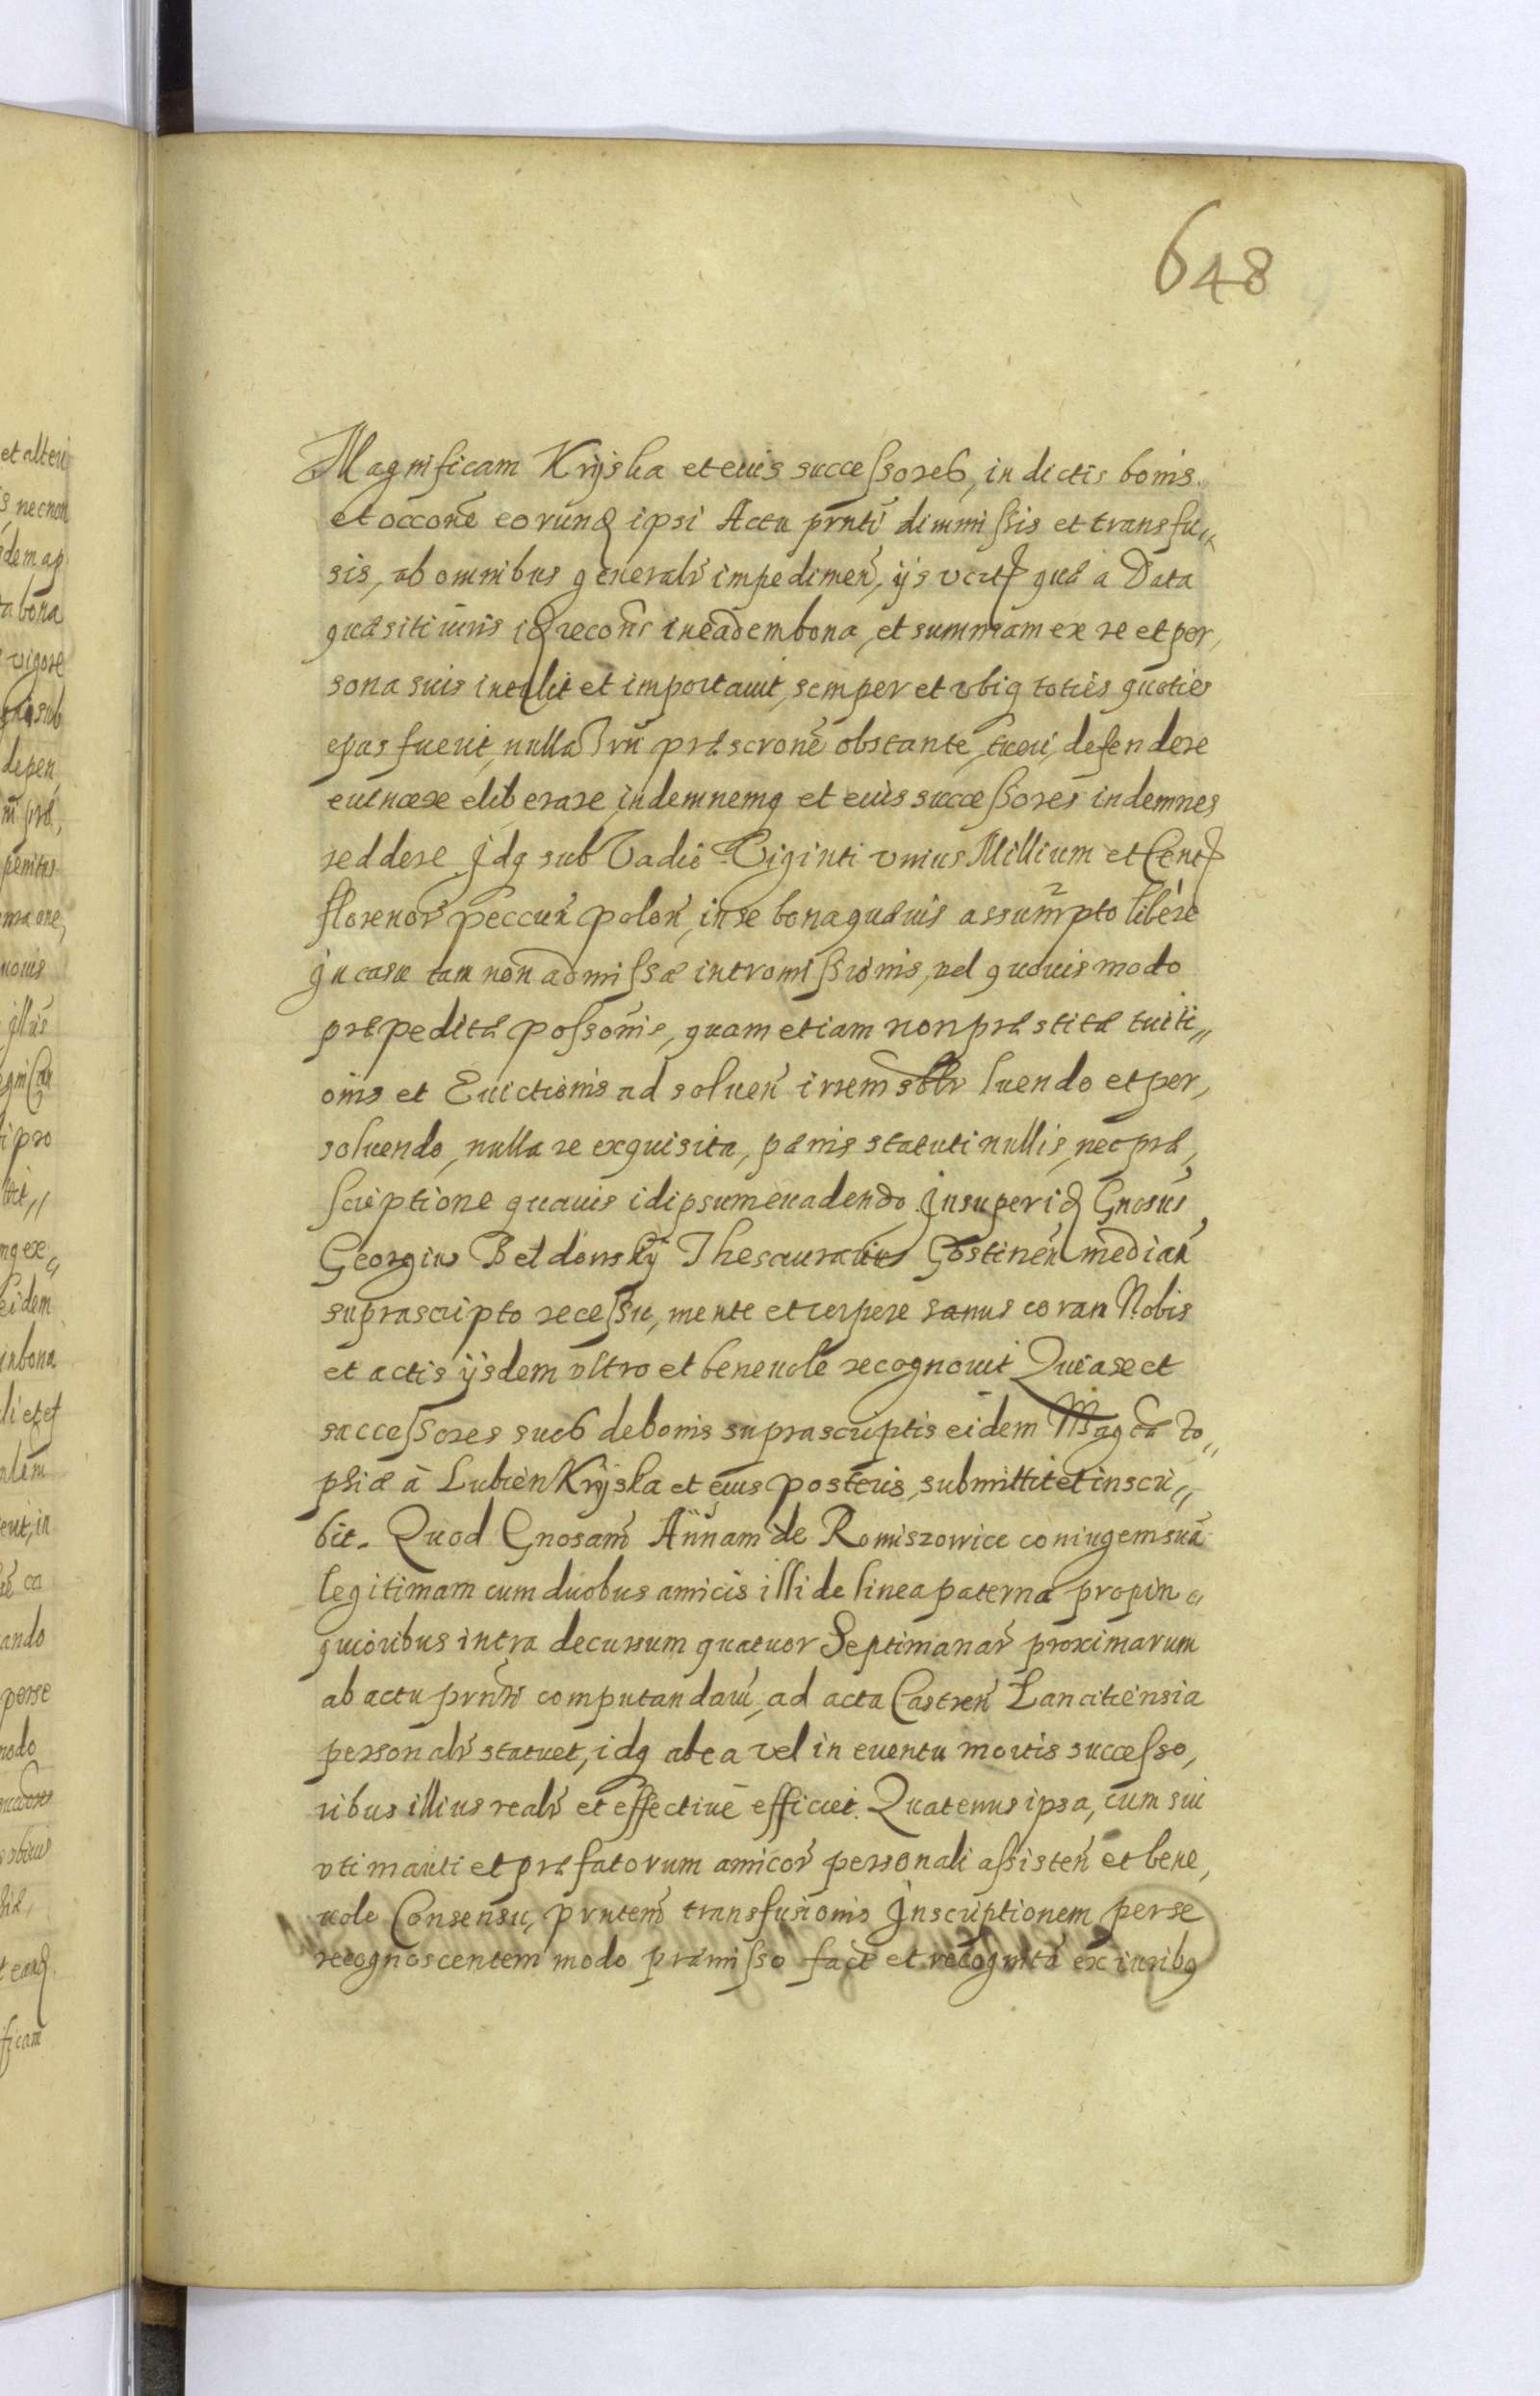 648
Magnificam Kryska et eius successores, in dictis bonis
et occone̅ eorund ipsi Actu prnti dimmissis et transfu„
sis, ab omnibus generalr̃ impedimen̅, ijs vert quæ a Data
quæsiti iuris id recons in eadem bona, et summam ex re et per,
sona suis intulit et importauit, semper et vbiq toties quoties
opus fuerit, nulla Trũ præscrone̅ obstante, tueri, defendere
euincere eliberare, indemnemq et eius successores indemnes
reddere. Idq sub Vadio Viginti vnius Millium et Cent
florenor̃ peccun̅ polon̅, in se bona quæuis assumpto libere
In casu tam non admissæ intromissionis, vel quouis modo
præpeditæ possonis, quam etiam non præstitæ tuiti„
onis et Euictionis ad soluen̅ irremsblr luendo et per,
soluendo, nulla re exquisita, pænis statuti nullis, nec præ,
scriptione quauis id ipsum euadendo. Insuper id Gnosus
Georgius Beldowsky Thesaurarius Gostinen̅ median̅
suprascripto recessu, mente et corpore sanus coram Nobis
et actis ijsdem vltro et beneuole recognouit Quia se et
successores suos de bonis suprascriptis eidem Magcæ Zo„
phiæ à Lubien Kryska et eius posteris, submittit et inscri„
bit. Quod Gnosam̅ Annam de Romiszowice coniugem suã
legitimam cum duobus amicis illi de linea paterna propin„
quioribus intra decursum quatuor Septimanar̃ proximarum
ab actu prntis computandar̃, ad acta Castren̅ Lanciciensia
personalr̃ statuet, idq ab ea vel in euentu mortis successo,
ribus illius realr̃ et effectiue efficiet. Quatenus ipsa, cum sui
vti mariti et præfatorum amicor̃ personali assisten̅ et bene,
uole Consensu, prntem̅ transfusionis Inscriptionem per se
recognoscentem modo præmisso factæ et recognitæ ex iuribq